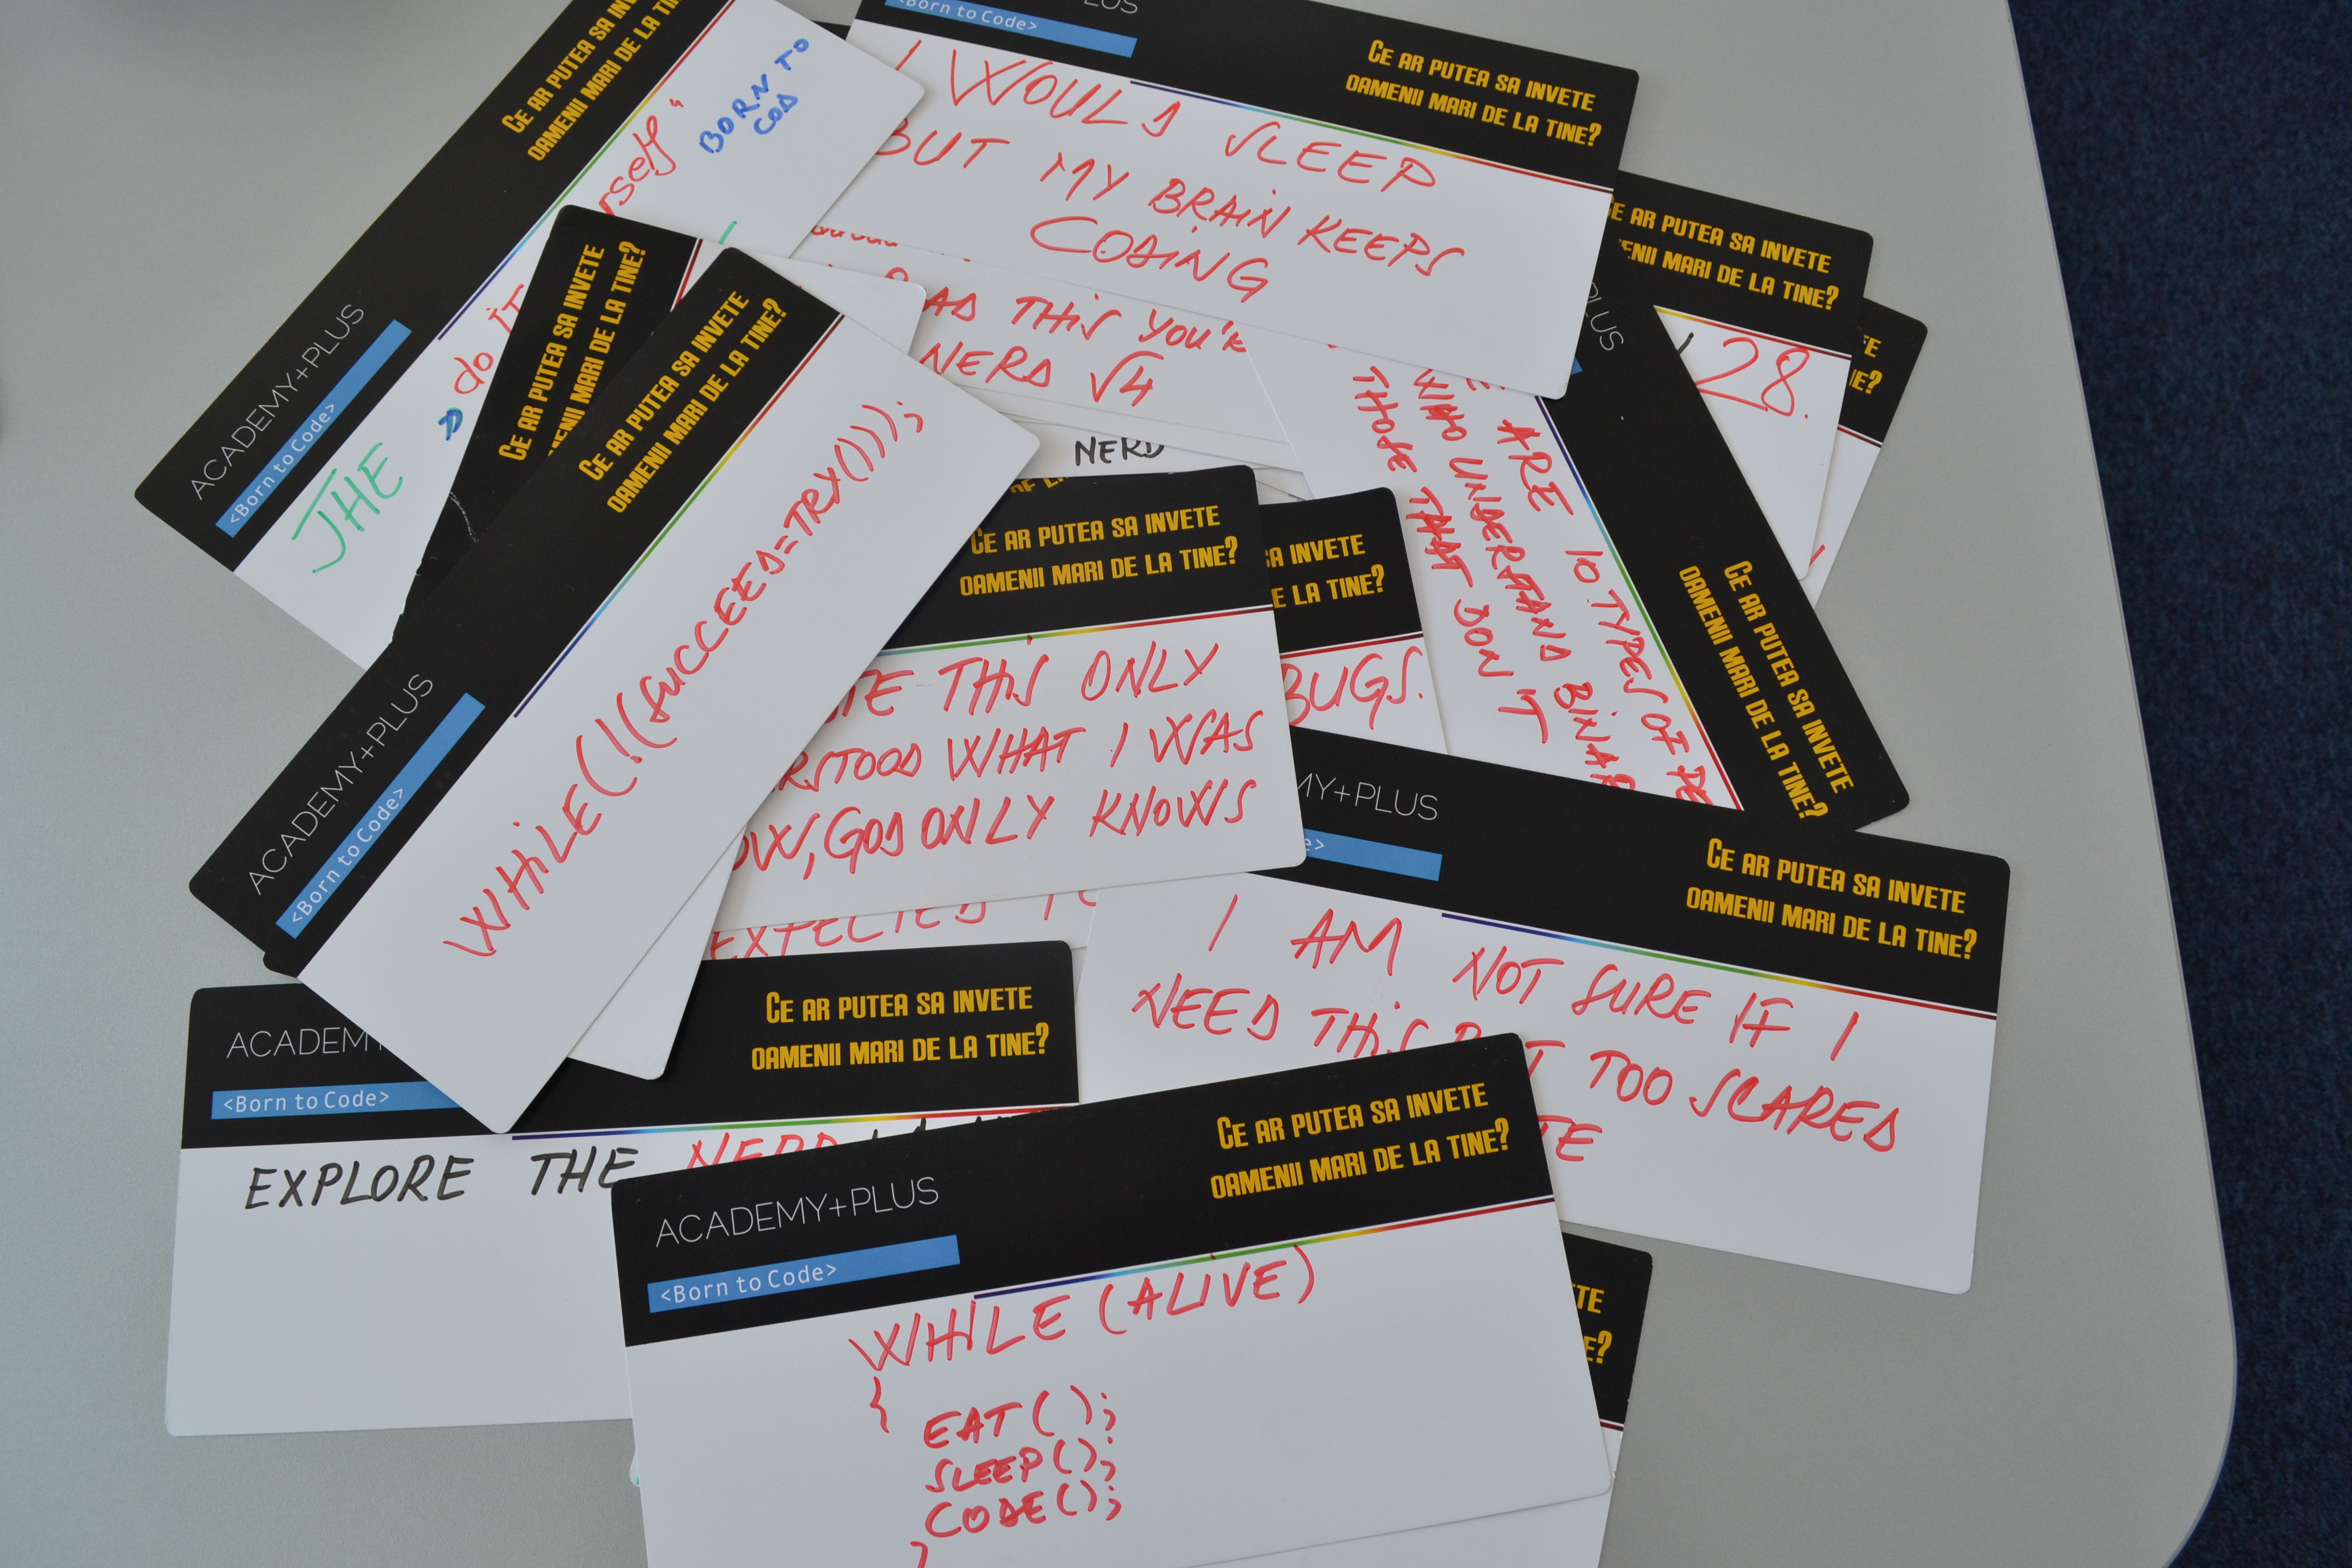 CE AR PUTEA SA INVETE
OAMENII MARI DE LA TINE?
ACADEMY+PLUS
<Born to Code>
BORN TO
COD
do IT
THE
<Born to Code>
CE AR PUTEA SA INVETE
OAMENII MARI DE LA TINE?
I WOULD SLEEP
BUT MY BRAIN KEEPS
CODING
CE AR PUTEA SA INVETE
MARI DE LA TINE?
28.
CE AR PUTEA SA INVETE
MARI DE LA TINE?
THIS YOU'R
NERD √4
NERD
CE AR PUTEA SA INVETE
OAMENII MARI DE LA TINE?
ARE 10 TYPES OF
WHO UNDERSTAND
THOSE THAT DON'T
CE AR PUTEA SA INVETE
OAMENII MARI DE LA TINE?
ACADEMY+PLUS
<Born to Code>
WHILE(!(SUCCEED=TRY()));
CE AR PUTEA SA INVETE
OAMENII MARI DE LA TINE?
THIS ONLY
WHAT I WAS
GOD ONLY KNOWS
SA INVETE
DE LA TINE?
BUGS.
EXPECTED
+PLUS
CE AR PUTEA SA INVETE
OAMENII MARI DE LA TINE?
I AM NOT SURE IF I
NEED THIS TOO SCARED
<Born to Code>
CE AR PUTEA SA INVETE
OAMENII MARI DE LA TINE?
EXPLORE THE NERD
ACADEMY+PLUS
<Born to Code>
CE AR PUTEA SA INVETE
OAMENII MARI DE LA TINE?
WHILE (ALIVE)
{
EAT();
SLEEP();
CODE();
}